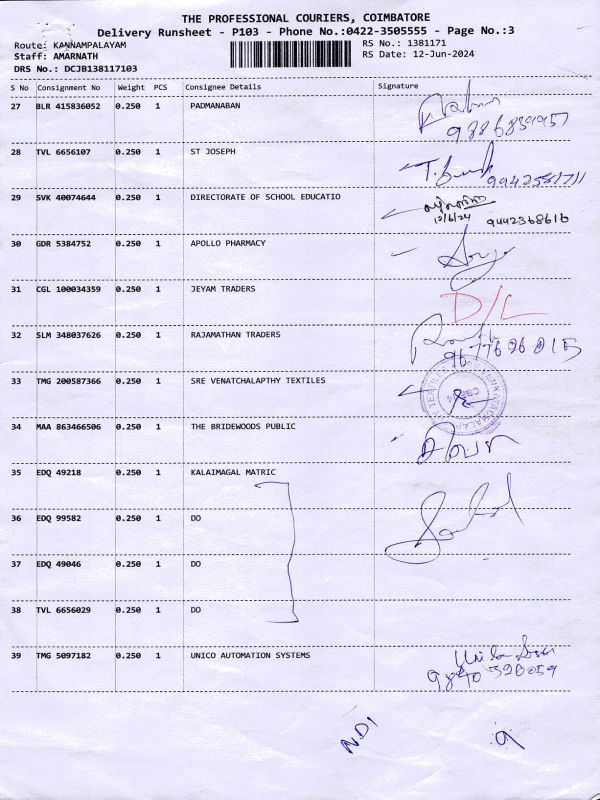 THE PROFESSIONAL COURIERS, COIMBATORE
Delivery Runsheet - P103 - Phone No.:0422-3505555 - Page No.:3
Route: KANNAMPALAYAM RS No.: 1381171
Staff: AMARNATH RS Date: 12-Jun-2024
DRS No.: DCJB138117103
S No Consignment No Weight PCS Consignee Details Signature
27 BLR 415836052 0.250 1 PADMANABAN
9886839957
28 TVL 6656107 0.250 1 ST JOSEPH
29 SVK 40074644 0.250 1 DIRECTORATE OF SCHOOL EDUCATIO
12/6/24 9442368616
30 GDR 5384752 0.250 1 APOLLO PHARMACY
31 CGL 100034359 0.250 1 JEYAM TRADERS
D/L
32 SLM 348037626 0.250 1 RAJAMATHAN TRADERS
33 TMG 200587366 0.250 1 SRE VENATCHALAPTHY TEXTILES
34 MAA 863466506 0.250 1 THE BRIDEWOODS PUBLIC
35 EDQ 49218 0.250 1 KALAIMAGAL MATRIC
36 EDQ 99582 0.250 1 DO
37 EDQ 49046 0.250 1 DO
38 TVL 6656029 0.250 1 DO
39 TMG 5097182 0.250 1 UNICO AUTOMATION SYSTEMS
9840 320059
NDI 9